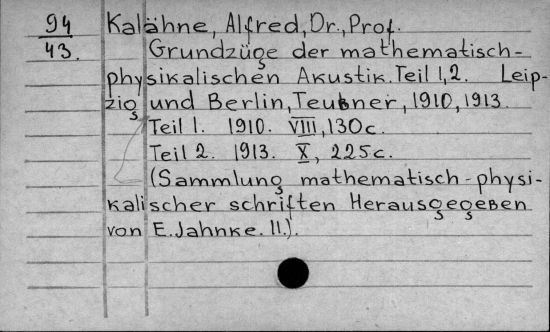 94
43.
Kalähne, Alfred, Dr., Prof.
Grundzüge der mathematisch-
physikalischen Akustik. Teil 1,2. Leip-
zig und Berlin, Teubner, 1910, 1913.
Teil 1. 1910. VIII, 130c.
Teil 2. 1913. X, 225c.
(Sammlung mathematisch-physi-
kalischer schriften Herausgegeben
von E. Jahnke. 11.).